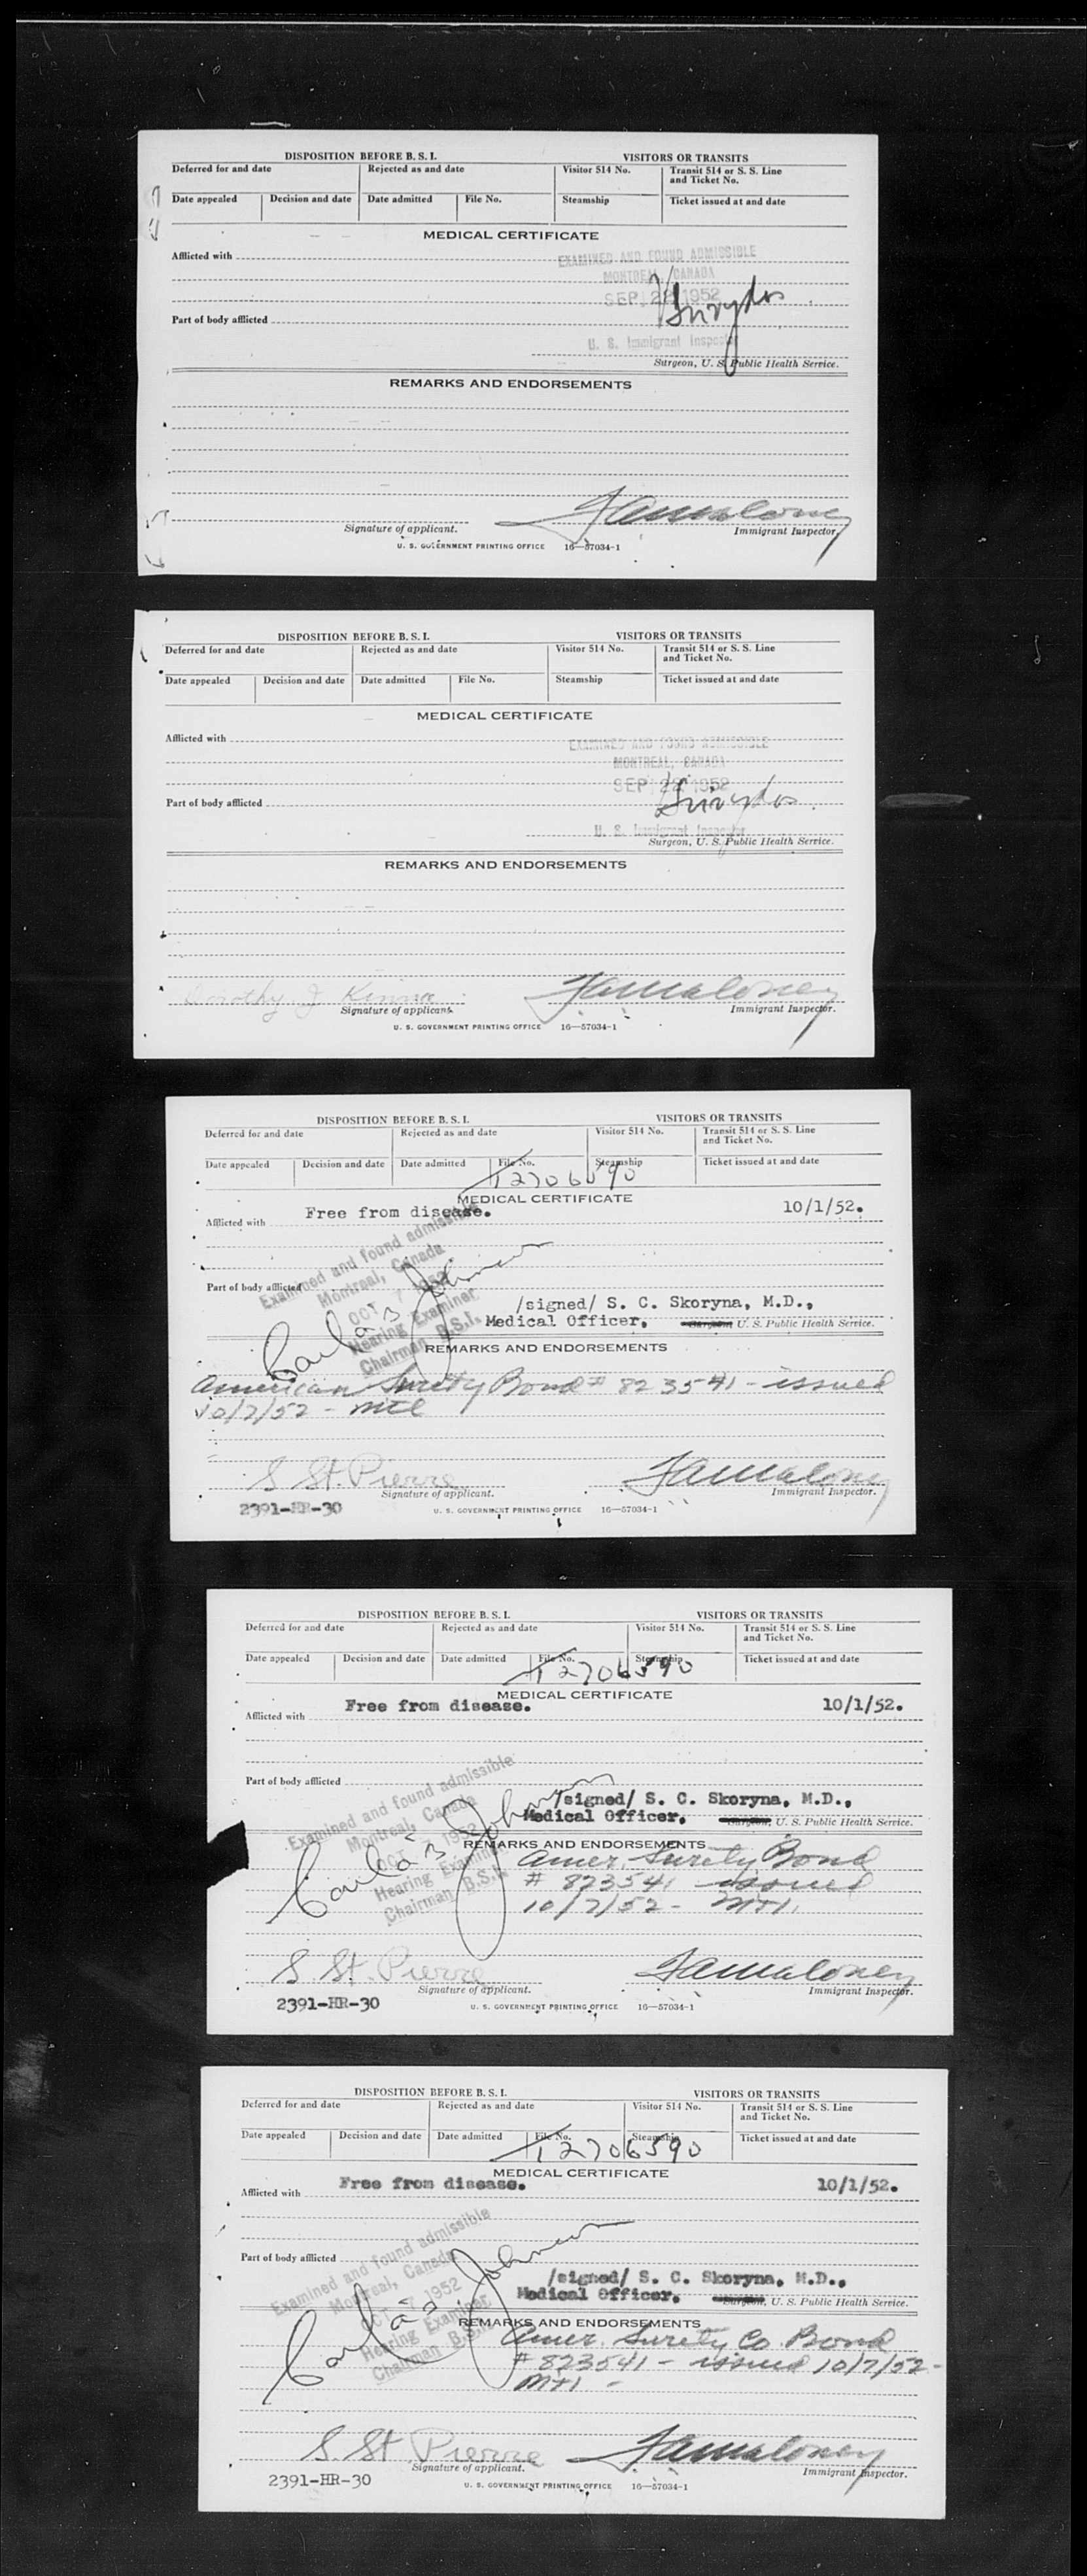 DISPOSITION BEFORE B. S. I. VISITORS OR TRANSITS
Deferred for and date Rejected as and date Visitor 514 No. Transit 514 or S. S. Line and Ticket No.
Date appealed Decision and date Date admitted File No. Steamship Ticket issued at and date
MEDICAL CERTIFICATE
Afflicted with
EXAMINED AND FOUND ADMISSIBLE
MONTREAL, CANADA
SEP 22 1952
Part of body afflicted
U. S. Immigrant Inspector
Surgeon, U. S. Public Health Service.
REMARKS AND ENDORSEMENTS
Signature of applicant. Immigrant Inspector.
U. S. GOVERNMENT PRINTING OFFICE 16—57034-1
DISPOSITION BEFORE B. S. I. VISITORS OR TRANSITS
Deferred for and date Rejected as and date Visitor 514 No. Transit 514 or S. S. Line and Ticket No.
Date appealed Decision and date Date admitted File No. Steamship Ticket issued at and date
MEDICAL CERTIFICATE
Afflicted with
EXAMINED AND FOUND ADMISSIBLE
MONTREAL, CANADA
SEP 22 1952
Part of body afflicted
U. S. Immigrant Inspector
Surgeon, U. S. Public Health Service.
REMARKS AND ENDORSEMENTS
Dorothy J FAMaloney
Signature of applicant. Immigrant Inspector.
U. S. GOVERNMENT PRINTING OFFICE 16—57034-1
DISPOSITION BEFORE B. S. I. VISITORS OR TRANSITS
Deferred for and date Rejected as and date Visitor 514 No. Transit 514 or S. S. Line and Ticket No.
Date appealed Decision and date Date admitted File No. Steamship Ticket issued at and date
T2706590
MEDICAL CERTIFICATE
Afflicted with Free from disease. 10/1/52.
Examined and found admissible
Montreal, Canada
OCT 7 1952
Part of body afflicted
Hearing Examiner
Chairman B.S.I.
/signed/ S. C. Skoryna, M.D.,
Medical Officer, U. S. Public Health Service.
REMARKS AND ENDORSEMENTS
American Surety Bond # 823541 - issued
10/7/52 - Mtl
S St. Pierre FAMaloney
Signature of applicant. Immigrant Inspector.
2391-HR-30 U. S. GOVERNMENT PRINTING OFFICE 16—57034-1
DISPOSITION BEFORE B. S. I. VISITORS OR TRANSITS
Deferred for and date Rejected as and date Visitor 514 No. Transit 514 or S. S. Line and Ticket No.
Date appealed Decision and date Date admitted File No. Steamship Ticket issued at and date
T2706590
MEDICAL CERTIFICATE
Afflicted with Free from disease. 10/1/52.
Part of body afflicted
Examined and found admissible
Montreal, Canada
OCT 7 1952
Hearing Examiner
Chairman B.S.I.
/signed/ S. C. Skoryna, M.D.,
Medical Officer, U. S. Public Health Service.
REMARKS AND ENDORSEMENTS
Amer. Surety Bond
# 823541 issued
10/7/52 - Mtl.
S St. Pierre FAMaloney
Signature of applicant. Immigrant Inspector.
2391-HR-30 U. S. GOVERNMENT PRINTING OFFICE 16—57034-1
DISPOSITION BEFORE B. S. I. VISITORS OR TRANSITS
Deferred for and date Rejected as and date Visitor 514 No. Transit 514 or S. S. Line and Ticket No.
Date appealed Decision and date Date admitted File No. Steamship Ticket issued at and date
T2706590
MEDICAL CERTIFICATE
Afflicted with Free from disease. 10/1/52.
Part of body afflicted
Examined and found admissible
Montreal, Canada
OCT 7 1952
Hearing Examiner
Chairman B.S.I.
/signed/ S. C. Skoryna, M.D.,
Medical Officer, Surgeon, U. S. Public Health Service.
REMARKS AND ENDORSEMENTS
Amer. Surety Co. Bond
# 823541 - issued 10/7/52 -
Mtl -
S St Pierre FAMaloney
Signature of applicant. Immigrant Inspector.
2391-HR-30 U. S. GOVERNMENT PRINTING OFFICE 16—57034-1